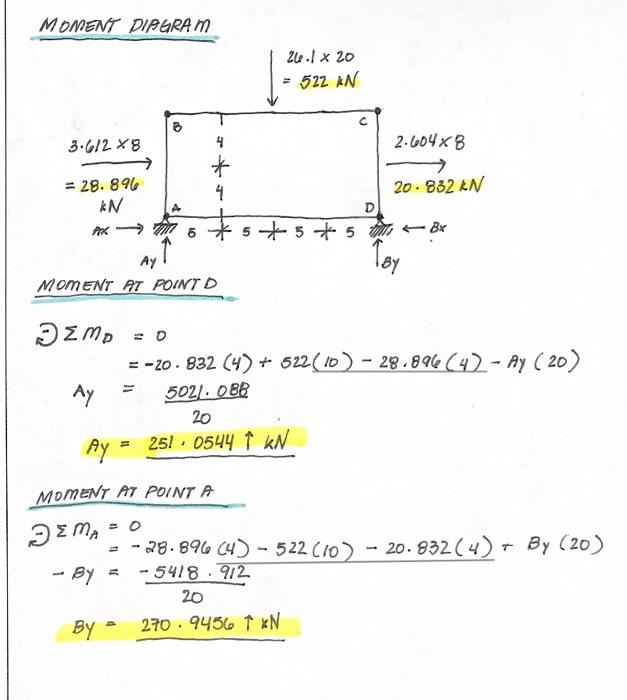 MOMENT DIAGRAM
26.1 x 20
= 522 kN
B
C
4
4
3.612 x 8
= 28.896
kN
2.604 x 8
20.832 kN
A
D
Ax
5
5
5
5
Bx
Ay
By
MOMENT AT POINT D
ΣMD = 0
= -20.832 (4) + 522(10) - 28.896(4) - Ay (20)
Ay = 5021.088
20
Ay = 251.0544 ↑ kN
MOMENT AT POINT A
ΣMA = 0
= -28.896 (4) - 522 (10) - 20.832 (4) + By (20)
- By = - 5418.912
20
By = 270.9456 ↑ kN